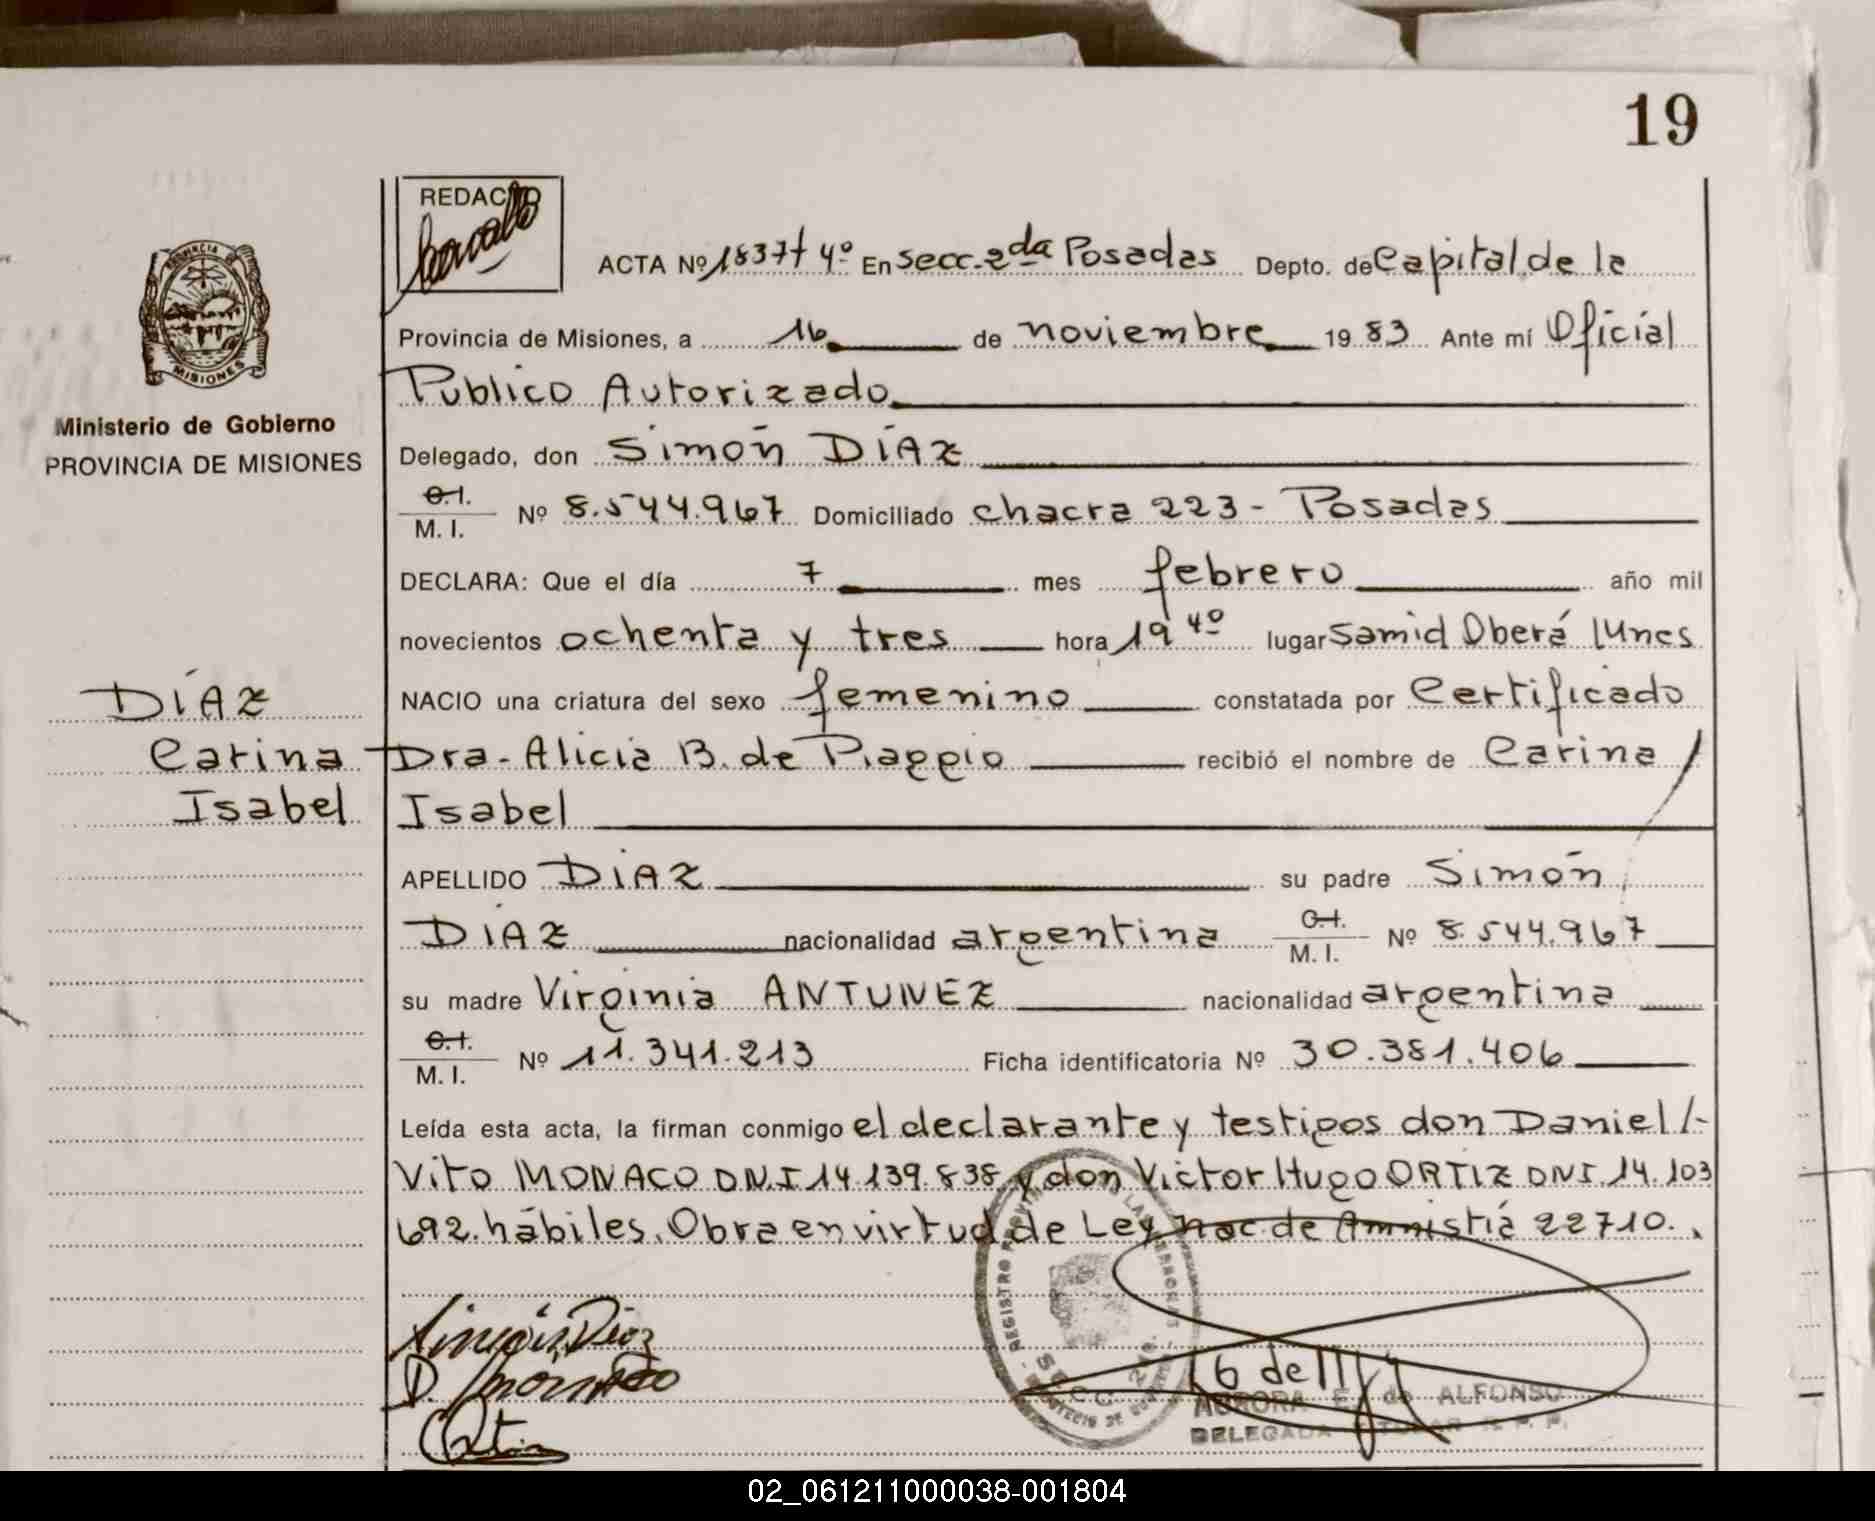 19
REDACTO
ACTA Nº 1837 t 4º En Secc. 2da Posadas Depto. de Capital de la
PROVINCIA
MISIONES
Provincia de Misiones, a 16 de noviembre 1983 Ante mí Oficial
Publico Autorizado
Ministerio de Gobierno
PROVINCIA DE MISIONES
Delegado, don Simón DÍAZ
C.I.
M. I. Nº 8.544.967 Domiciliado chacra 223 - Posadas
DECLARA: Que el día 7 mes febrero año mil
novecientos ochenta y tres hora 19 4º lugar Samid Oberá lunes
NACIO una criatura del sexo femenino constatada por Certificado
DÍAZ
Carina
Isabel
Dra. Alicia B. de Piaggio recibió el nombre de Carina /
Isabel
APELLIDO DÍAZ su padre Simón
DÍAZ nacionalidad argentina C.I. M. I. Nº 8.544.967
su madre Virginia ANTUNEZ nacionalidad argentina
C.I.
M. I. Nº 11.341.213 Ficha identificatoria Nº 30.381.406
Leída esta acta, la firman conmigo el declarante y testigos don Daniel /-
Vito MONACO DN.I 14.139.838 y don Victor Hugo ORTIZ DNI. 14.103
692. hábiles. Obra en virtud de Ley nac. de Amnistía 22710.
Simón Diaz
D. Monaco
Ortiz
REGISTRO
SECC. 2da.
16 de 11
AURORA E. de ALFONSO
DELEGADA TITULAR R. P. P.
02_061211000038-001804